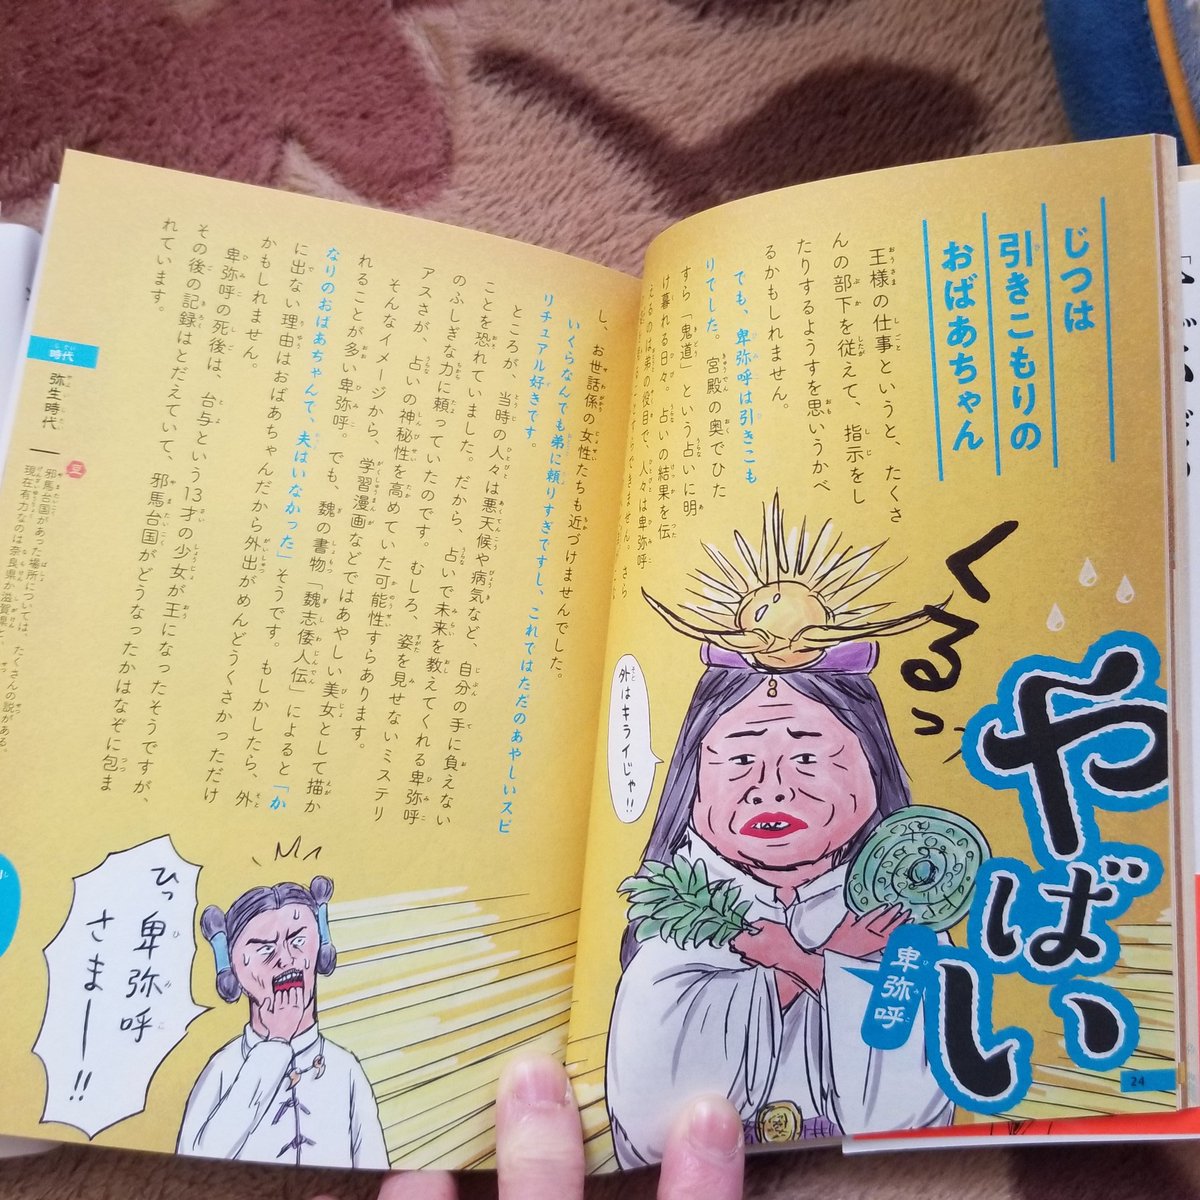 じつは
引きこもりの
おばあちゃん
王様の仕事というと、たくさ
んの部下を従えて、指示をし
たりするようすを思いうかべ
るかもしれません。
でも、卑弥呼は引きこも
りでした。宮殿の奥でひた
すら「鬼道」という占いに明
け暮れる日々。占いの結果を伝
えるのは弟の役目で、人々は卑弥呼
きません。さら
くるっ
やばい
やばし
卑弥呼
外はキライじゃ!!
24
し、お世話係の女性たちも近づけませんでした。
いくらなんでも弟に頼りすぎですし、これではただのあやしいスピ
リチュアル好きです。
ところが、当時の人々は悪天候や病気など、自分の手に負えない
ことを恐れていました。だから、占いで未来を教えてくれる卑弥呼
のふしぎな力に頼っていたのです。むしろ、姿を見せないミステリ
アスさが、占いの神秘性を高めていた可能性すらあります。
そんなイメージから、学習漫画などではあやしい美女として描か
れることが多い卑弥呼。でも、魏の書物「魏志倭人伝」によると「か
なりのおばあちゃんで、夫はいなかった」そうです。もしかしたら、外
に出ない理由はおばあちゃんだから外出がめんどうくさかっただけ
かもしれません。
卑弥呼の死後は、台与という13才の少女が王になったそうですが、
その後の記録はとだえていて、邪馬台国がどうなったかはなぞに包ま
れています。
時代
弥生時代
豆
邪馬台国があった場所については、たくさんの説がある。
現在有力なのは奈良県か滋賀県と、
ひっ
卑弥呼
さまー!!